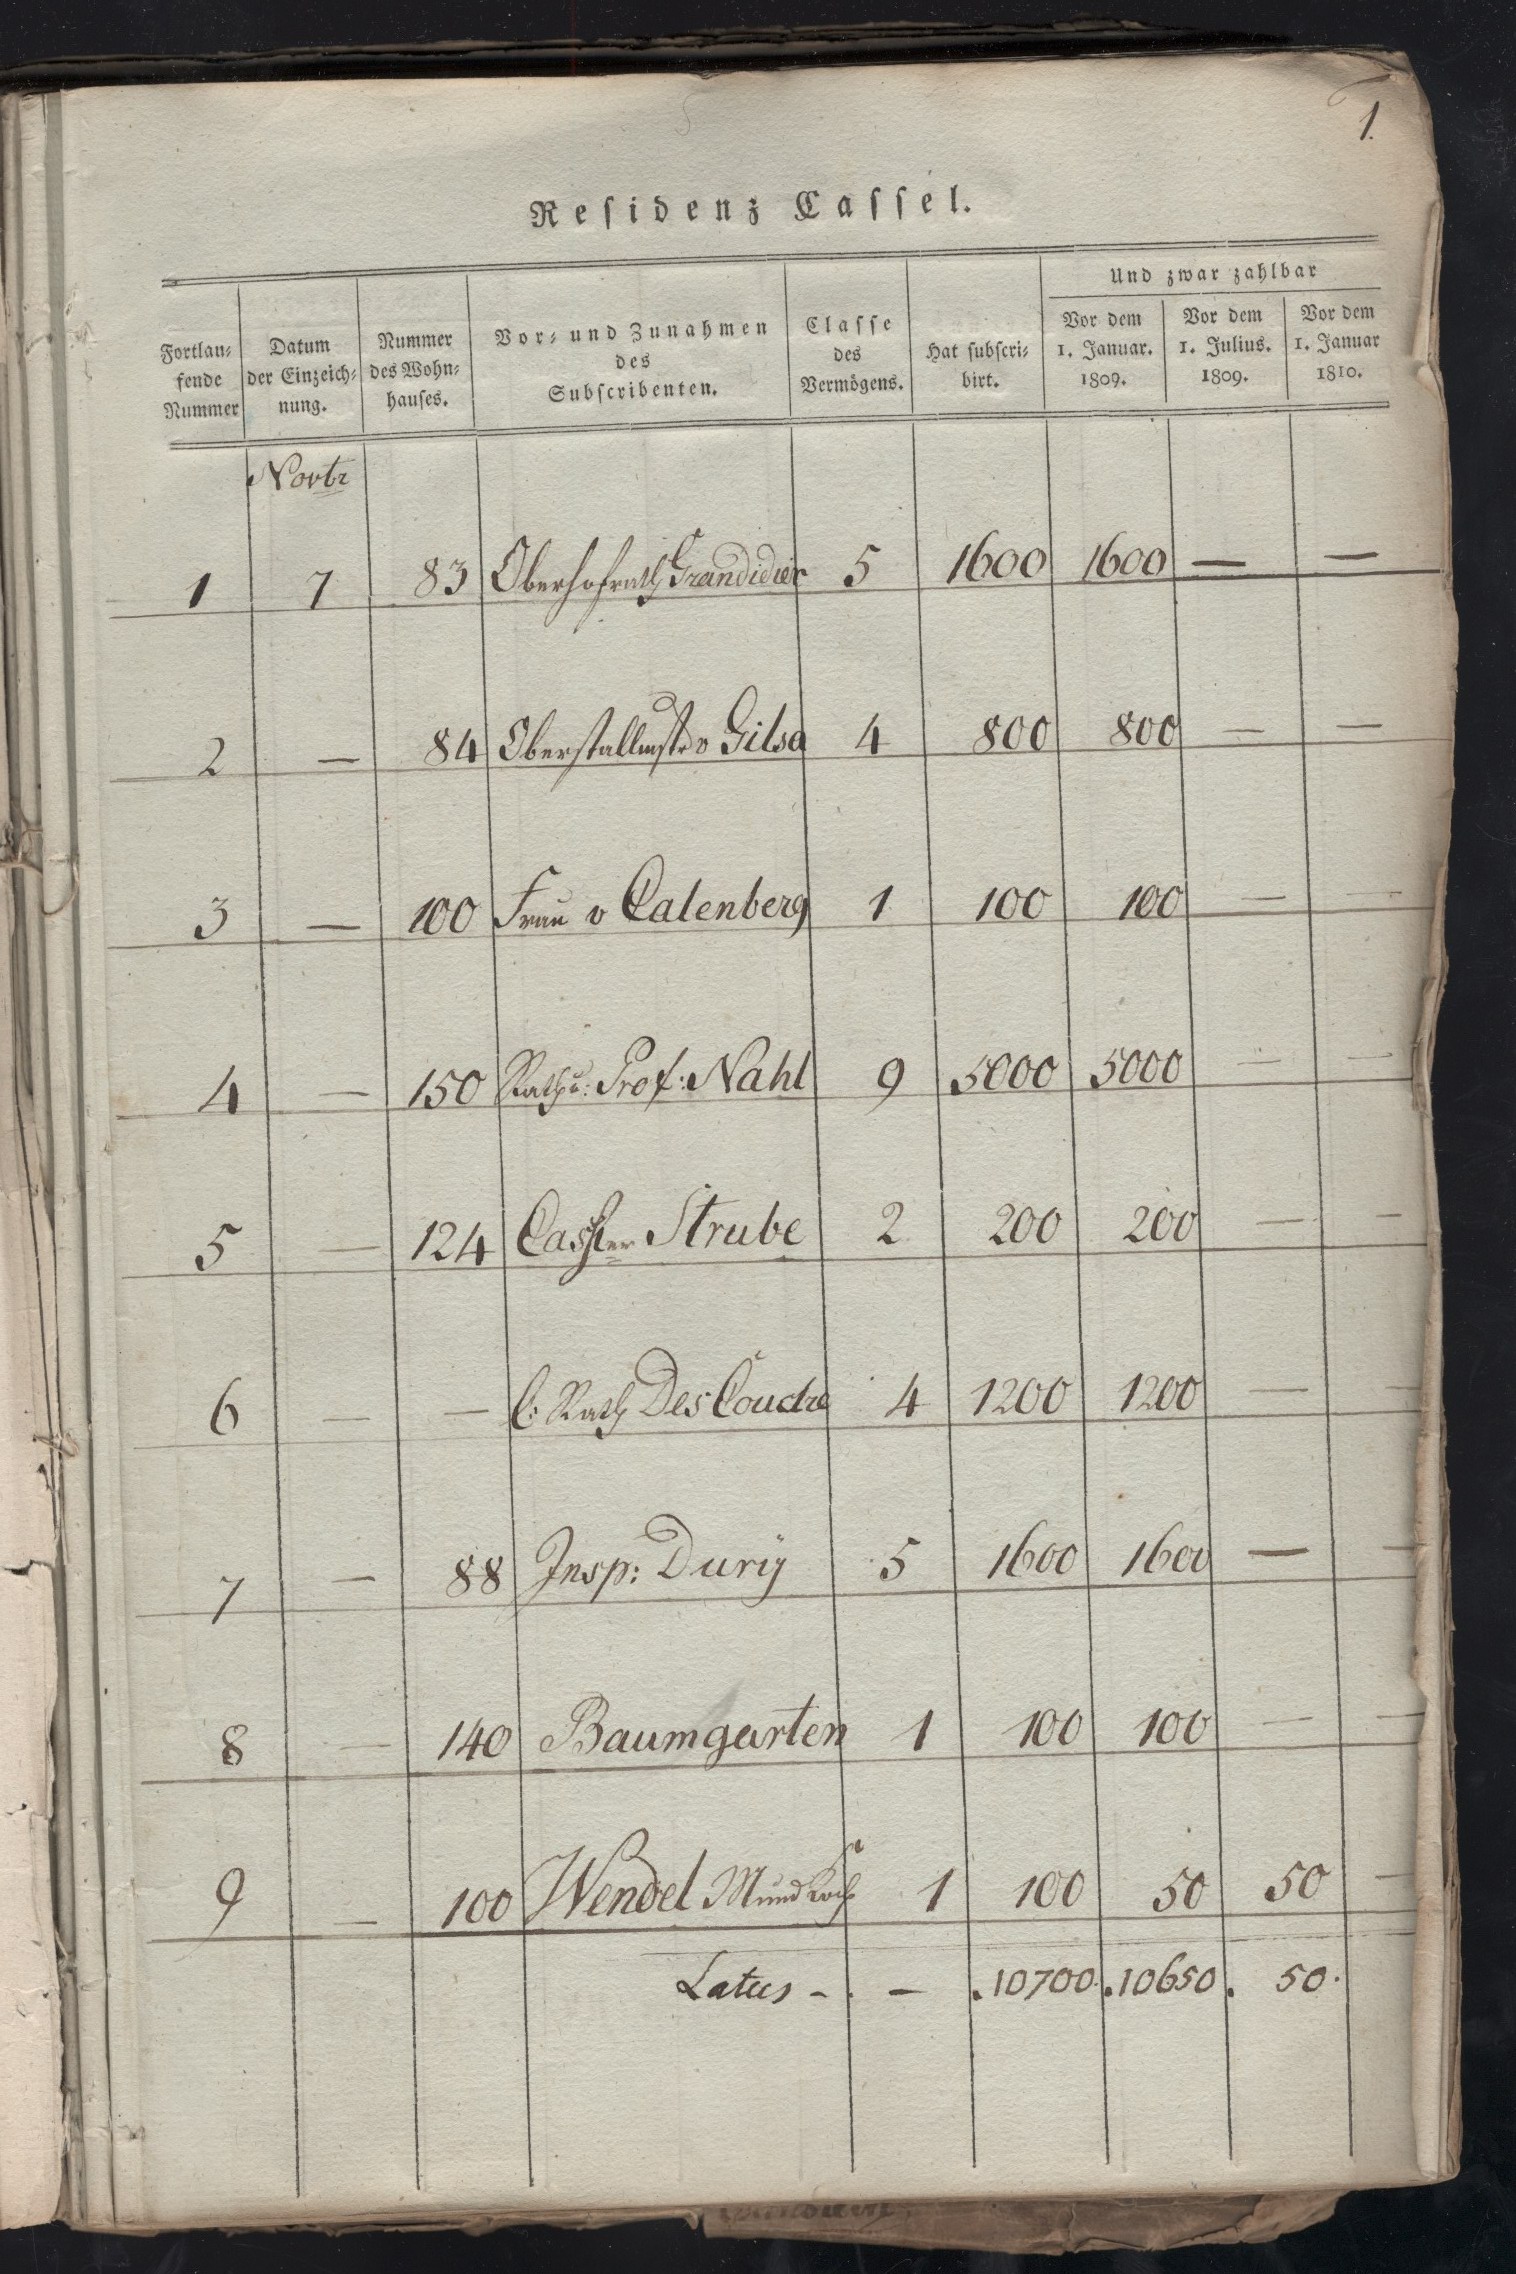 1.
Residenz Cassel.
Fortlau-
fende
Nummer
Datum
der Einzeich-
nung.
Nummer
des Wohn-
hauses.
Vor- und Zunahmen
des
Subscribenten.
Classe
des
Vermögens.
Hat subscri-
birt.
Und zwar zahlbar
Vor dem
1. Januar.
1809.
Vor dem
1. Julius.
1809.
Vor dem
1. Januar
1810.
Novbr
1 7 83 Oberhofrath Grandidier 5 1600 1600 — —
2 — 84 Oberstallmstr v Gilsa 4 800 800 — —
3 — 100 Frau v Calenberg 1 100 100 — —
4 — 150 Rath u: Prof: Nahl 9 5000 5000 — —
5 — 124 Strube 2 200 200 — —
6 — — C: Rath Des Coudre 4 1200 1200 — —
7 — 88 Insp: Durij 5 1600 1600 — —
8 — 140 Baumgarten 1 100 100 — —
9 — 100 Wendel Mundkoch 1 100 50 50 —
Latus - . — . 10700. . 10650 . 50.